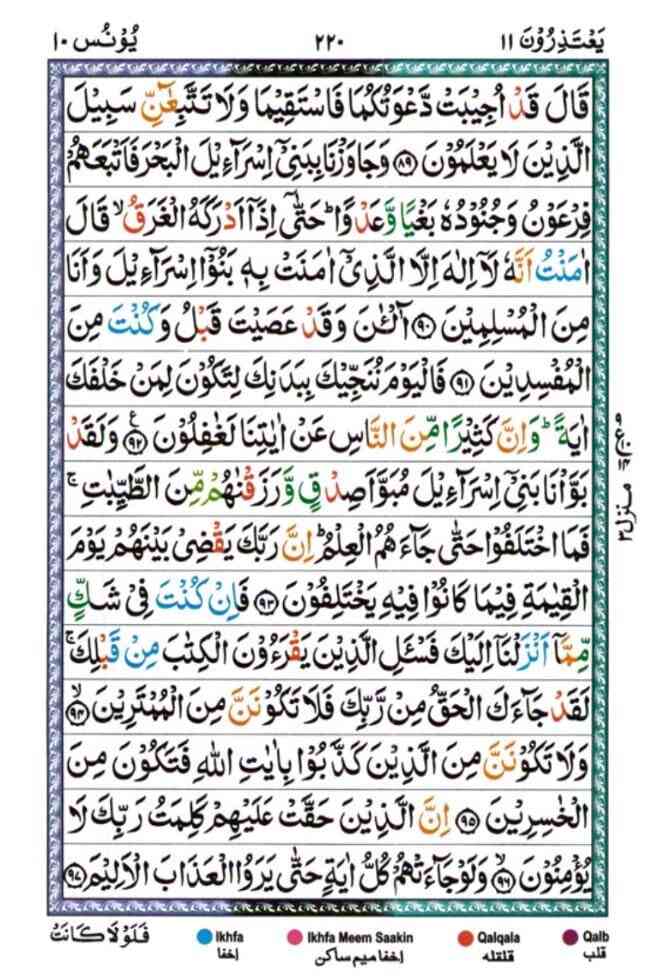 يَعْتَذِرُوْنَ ١١
٢٢٠
يُوْنُس ١٠
قَالَ قَدْ اُجِيْبَتْ دَّعْوَتُكُمَا فَاسْتَقِيْمَا وَلَا تَتَّبِعٰٓنِّ سَبِيْلَ
الَّذِيْنَ لَا يَعْلَمُوْنَ ﴿٨٩﴾ وَجَاوَزْنَا بِبَنِىْٓ اِسْرَآءِيْلَ الْبَحْرَ فَاَتْبَعَهُمْ
فِرْعَوْنُ وَجُنُوْدُهٗ بَغْيًا وَّعَدْوًا ؕ حَتّٰٓى اِذَاۤ اَدْرَكَهُ الْغَرَقُ ۙ قَالَ
اٰمَنْتُ اَنَّهٗ لَاۤ اِلٰهَ اِلَّا الَّذِىْٓ اٰمَنَتْ بِهٖ بَنُوْۤا اِسْرَآءِيْلَ وَاَنَا
مِنَ الْمُسْلِمِيْنَ ﴿٩٠﴾ آٰلْئٰنَ وَقَدْ عَصَيْتَ قَبْلُ وَكُنْتَ مِنَ
الْمُفْسِدِيْنَ ﴿٩١﴾ فَالْيَوْمَ نُنَجِّيْكَ بِبَدَنِكَ لِتَكُوْنَ لِمَنْ خَلْفَكَ
اٰيَةً ؕ وَاِنَّ كَثِيْرًا مِّنَ النَّاسِ عَنْ اٰيٰتِنَا لَغٰفِلُوْنَ ﴿٩٢﴾ ع وَلَقَدْ
بَوَّاْنَا بَنِىْٓ اِسْرَآءِيْلَ مُبَوَّاَ صِدْقٍ وَّرَزَقْنٰهُمْ مِّنَ الطَّيِّبٰتِ ۚ
فَمَا اخْتَلَفُوْا حَتّٰى جَآءَهُمُ الْعِلْمُ ؕ اِنَّ رَبَّكَ يَقْضِىْ بَيْنَهُمْ يَوْمَ
الْقِيٰمَةِ فِيْمَا كَانُوْا فِيْهِ يَخْتَلِفُوْنَ ﴿٩٣﴾ فَاِنْ كُنْتَ فِىْ شَكٍّ
مِّمَّاۤ اَنْزَلْنَاۤ اِلَيْكَ فَسْئَلِ الَّذِيْنَ يَقْرَءُوْنَ الْكِتٰبَ مِنْ قَبْلِكَ ۚ
لَقَدْ جَآءَكَ الْحَقُّ مِنْ رَّبِّكَ فَلَا تَكُوْنَنَّ مِنَ الْمُمْتَرِيْنَ ۙ﴿٩٤﴾
وَلَا تَكُوْنَنَّ مِنَ الَّذِيْنَ كَذَّبُوْا بِاٰيٰتِ اللّٰهِ فَتَكُوْنَ مِنَ
الْخٰسِرِيْنَ ﴿٩٥﴾ اِنَّ الَّذِيْنَ حَقَّتْ عَلَيْهِمْ كَلِمَتُ رَبِّكَ لَا
يُؤْمِنُوْنَ ۙ﴿٩٦﴾ وَلَوْ جَآءَتْهُمْ كُلُّ اٰيَةٍ حَتّٰى يَرَوُا الْعَذَابَ الْاَلِيْمَ ﴿٩٧﴾
منزل ٣
فَلَوْلَا كَانَتْ
Ikhfa
اخفا
Ikhfa Meem Saakin
اخفا میم ساکن
Qalqala
قلقله
Qalb
قلب